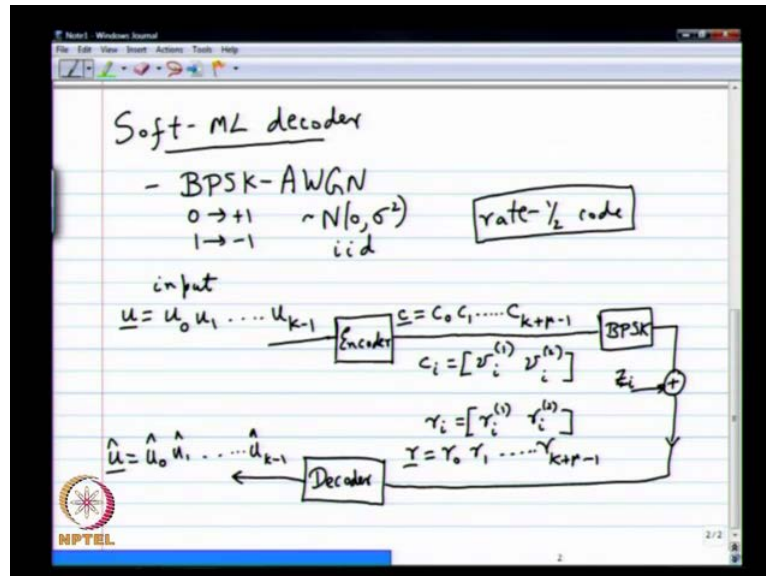 Note1 - Windows Journal
File Edit View Insert Actions Tools Help
Soft-ML decoder
- BPSK-AWGN
0 → +1 ~N(0, σ²)
1 → -1 iid
rate-1/2 code
input
u = u₀ u₁ ..... u_{k-1}
Encoder
c = c₀ c₁ ..... c_{k+μ-1}
BPSK
c_i = [v_i^{(1)} v_i^{(2)}]
z_i +
r_i = [r_i^{(1)} r_i^{(2)}]
û = û₀ û₁ ..... û_{k-1}
Decoder
r = r₀ r₁ ..... r_{k+μ-1}
NPTEL
2/2
2